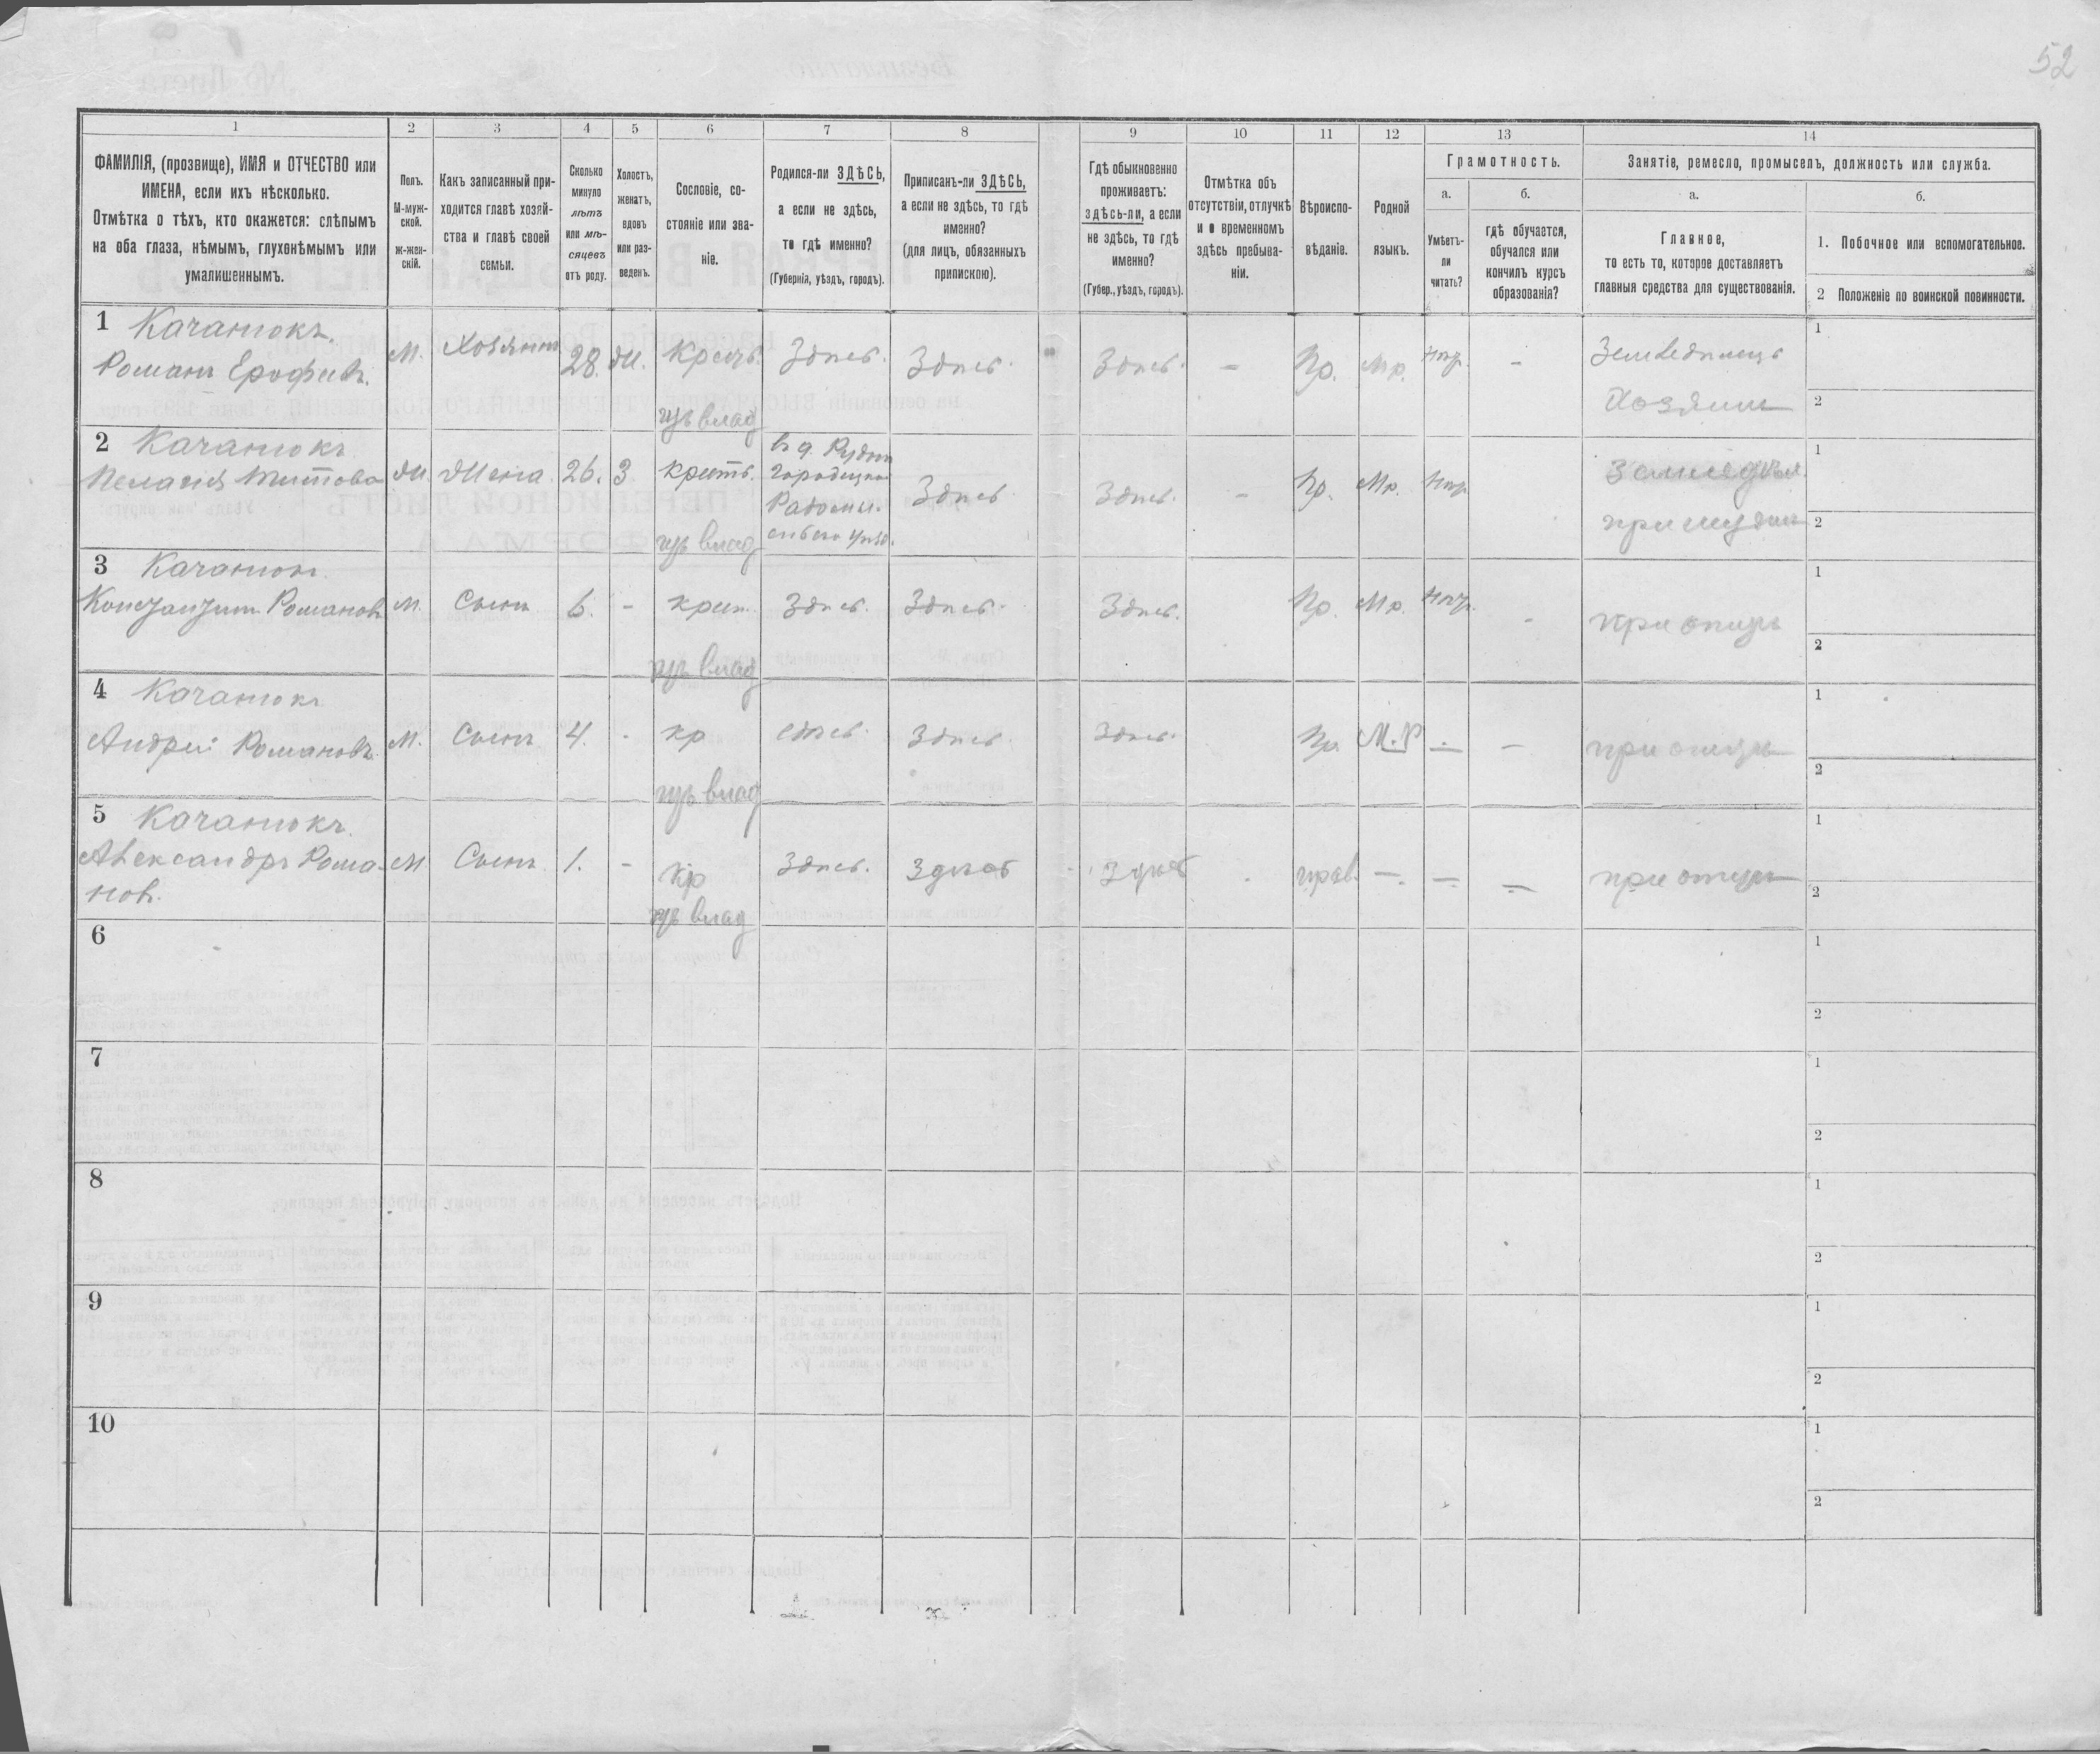 52
1
2
3
4
5
6
7
8
9
10
11
12
13
14
ФАМИЛІЯ, (прозвище), ИМЯ и ОТЧЕСТВО или
ИМЕНА, если ихъ нѣсколько.
Отмѣтка о тѣхъ, кто окажется: слѣпымъ
на оба глаза, нѣмымъ, глухонѣмымъ или
умалишеннымъ.
Полъ.
М-муж-
ской.
ж-жен-
скій.
Какъ записанный при-
ходится главѣ хозяй-
ства и главѣ своей
семьи.
Сколько
минуло
лѣтъ
или мѣ-
сяцевъ
отъ роду.
Холостъ,
женатъ,
вдовъ
или раз-
веденъ.
Сословіе, со-
стояніе или зва-
ніе.
Родился-ли ЗДѢСЬ,
а если не здѣсь,
то гдѣ именно?
(Губернія, уѣздъ, городъ).
Приписанъ-ли ЗДѢСЬ,
а если не здѣсь, то гдѣ
именно?
(для лицъ, обязанныхъ
припискою).
Гдѣ обыкновенно
проживаетъ:
здѣсь-ли, а если
не здѣсь, то гдѣ
именно?
(Губер., уѣздъ, городъ).
Отмѣтка объ
отсутствіи, отлучкѣ
и о временномъ
здѣсь пребыва-
ніи.
Вѣроиспо-
вѣданіе.
Родной
языкъ.
Грамотность.
а.
Умѣетъ-
ли
читать?
б.
гдѣ обучается,
обучался или
кончилъ курсъ
образованія?
Занятіе, ремесло, промыселъ, должность или служба.
а.
Главное,
то есть то, которое доставляетъ
главныя средства для существованія.
б.
1. Побочное или вспомогательное.
2 Положеніе по воинской повинности.
1 Качанюкъ.
Романъ Ерофеевъ.
М.
Хозяинъ
28.
Ж.
Крест.
изъ влад
Здѣсь.
Здѣсь.
Здѣсь.
-
Пр.
Мр.
Нгр.
-
Земледѣлецъ
Хозяинъ
1
2
2 Качанюкъ
Пелагия Титова
Ж.
Жена
26.
З
крест.
изъ влад
въ д. Рудни
Городецко
Радомы-
сльского уѣзд.
Здѣсь
Здѣсь.
-
Пр.
Мр.
Нгр.
при мужѣ
1
2
3 Качанюкъ
Константинъ Романовъ
М.
Сынъ
6.
-
крест.
изъ влад
Здѣсь.
Здѣсь.
Здѣсь.
Пр.
Мр.
Нгр.
-
при отцѣ
1
2
4 Качанюкъ
Андрей Романовъ.
М.
Сынъ
4.
-
кр
изъ влад
Здѣсь.
Здѣсь.
Здѣсь.
Пр.
М.Р
-
-
при отцѣ
1
2
5 Качанюкъ.
Александръ Рома-
новъ.
М
Сынъ
1.
-
кр
изъ влад
Здѣсь.
Здѣсь
Здѣсь
прав.
-
-
-
при отцѣ
1
2
6
1
2
7
1
2
8
1
2
9
1
2
10
1
2